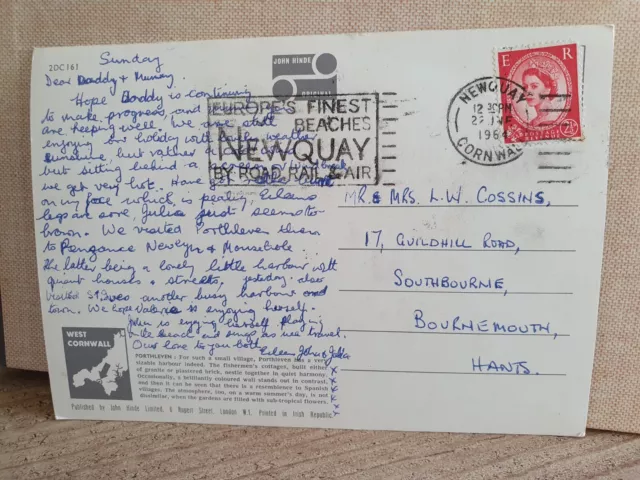 20C161
Sunday
JOHN HINDE
ORIGINAL
Dear Daddy & Mummy,
Hope Daddy is continuing
to make progress, and
are keeping well, we are still
enjoying our holiday with
sunshine, but rather
but sitting behind a
we get very hot. Have got
on my face which is peeling, Eileens
legs are sore, Julie just seems to
brown. We visited Porthleven then
to Penzance Newlyn & Mousehole.
The latter being a lovely little harbour with
quaint houses & streets, yesterday
visited St Ives another busy harbour and
town. We hope Valerie is enjoying herself.
is enjoying herself playing
the beach and sings as we travel.
Our love to you both
Eileen John & Julie
x x x x x x
EUROPE'S FINEST
BEACHES
NEWQUAY
BY ROAD, RAIL & AIR
NEWQUAY
12 30PM
1964
CORNWALL
E R
2½
MR. & MRS. L.W. COSSINS,
17, GUILDHILL ROAD,
SOUTHBOURNE,
BOURNEMOUTH,
HANTS.
WEST
CORNWALL
PORTHLEVEN: For such a small village, Porthleven has a very
sizable harbour indeed. The fishermen's cottages, built either
of granite or plastered brick, nestle together in quiet harmony.
Occasionally, a brilliantly coloured wall stands out in contrast,
and then it can be seen that there is a resemblance to Spanish
villages. The atmosphere, too, on a warm summer's day, is not
dissimilar, when the gardens are filled with sub-tropical flowers.
Published by John Hinde Limited, 6 Rupert Street, London W.1. Printed in Irish Republic.